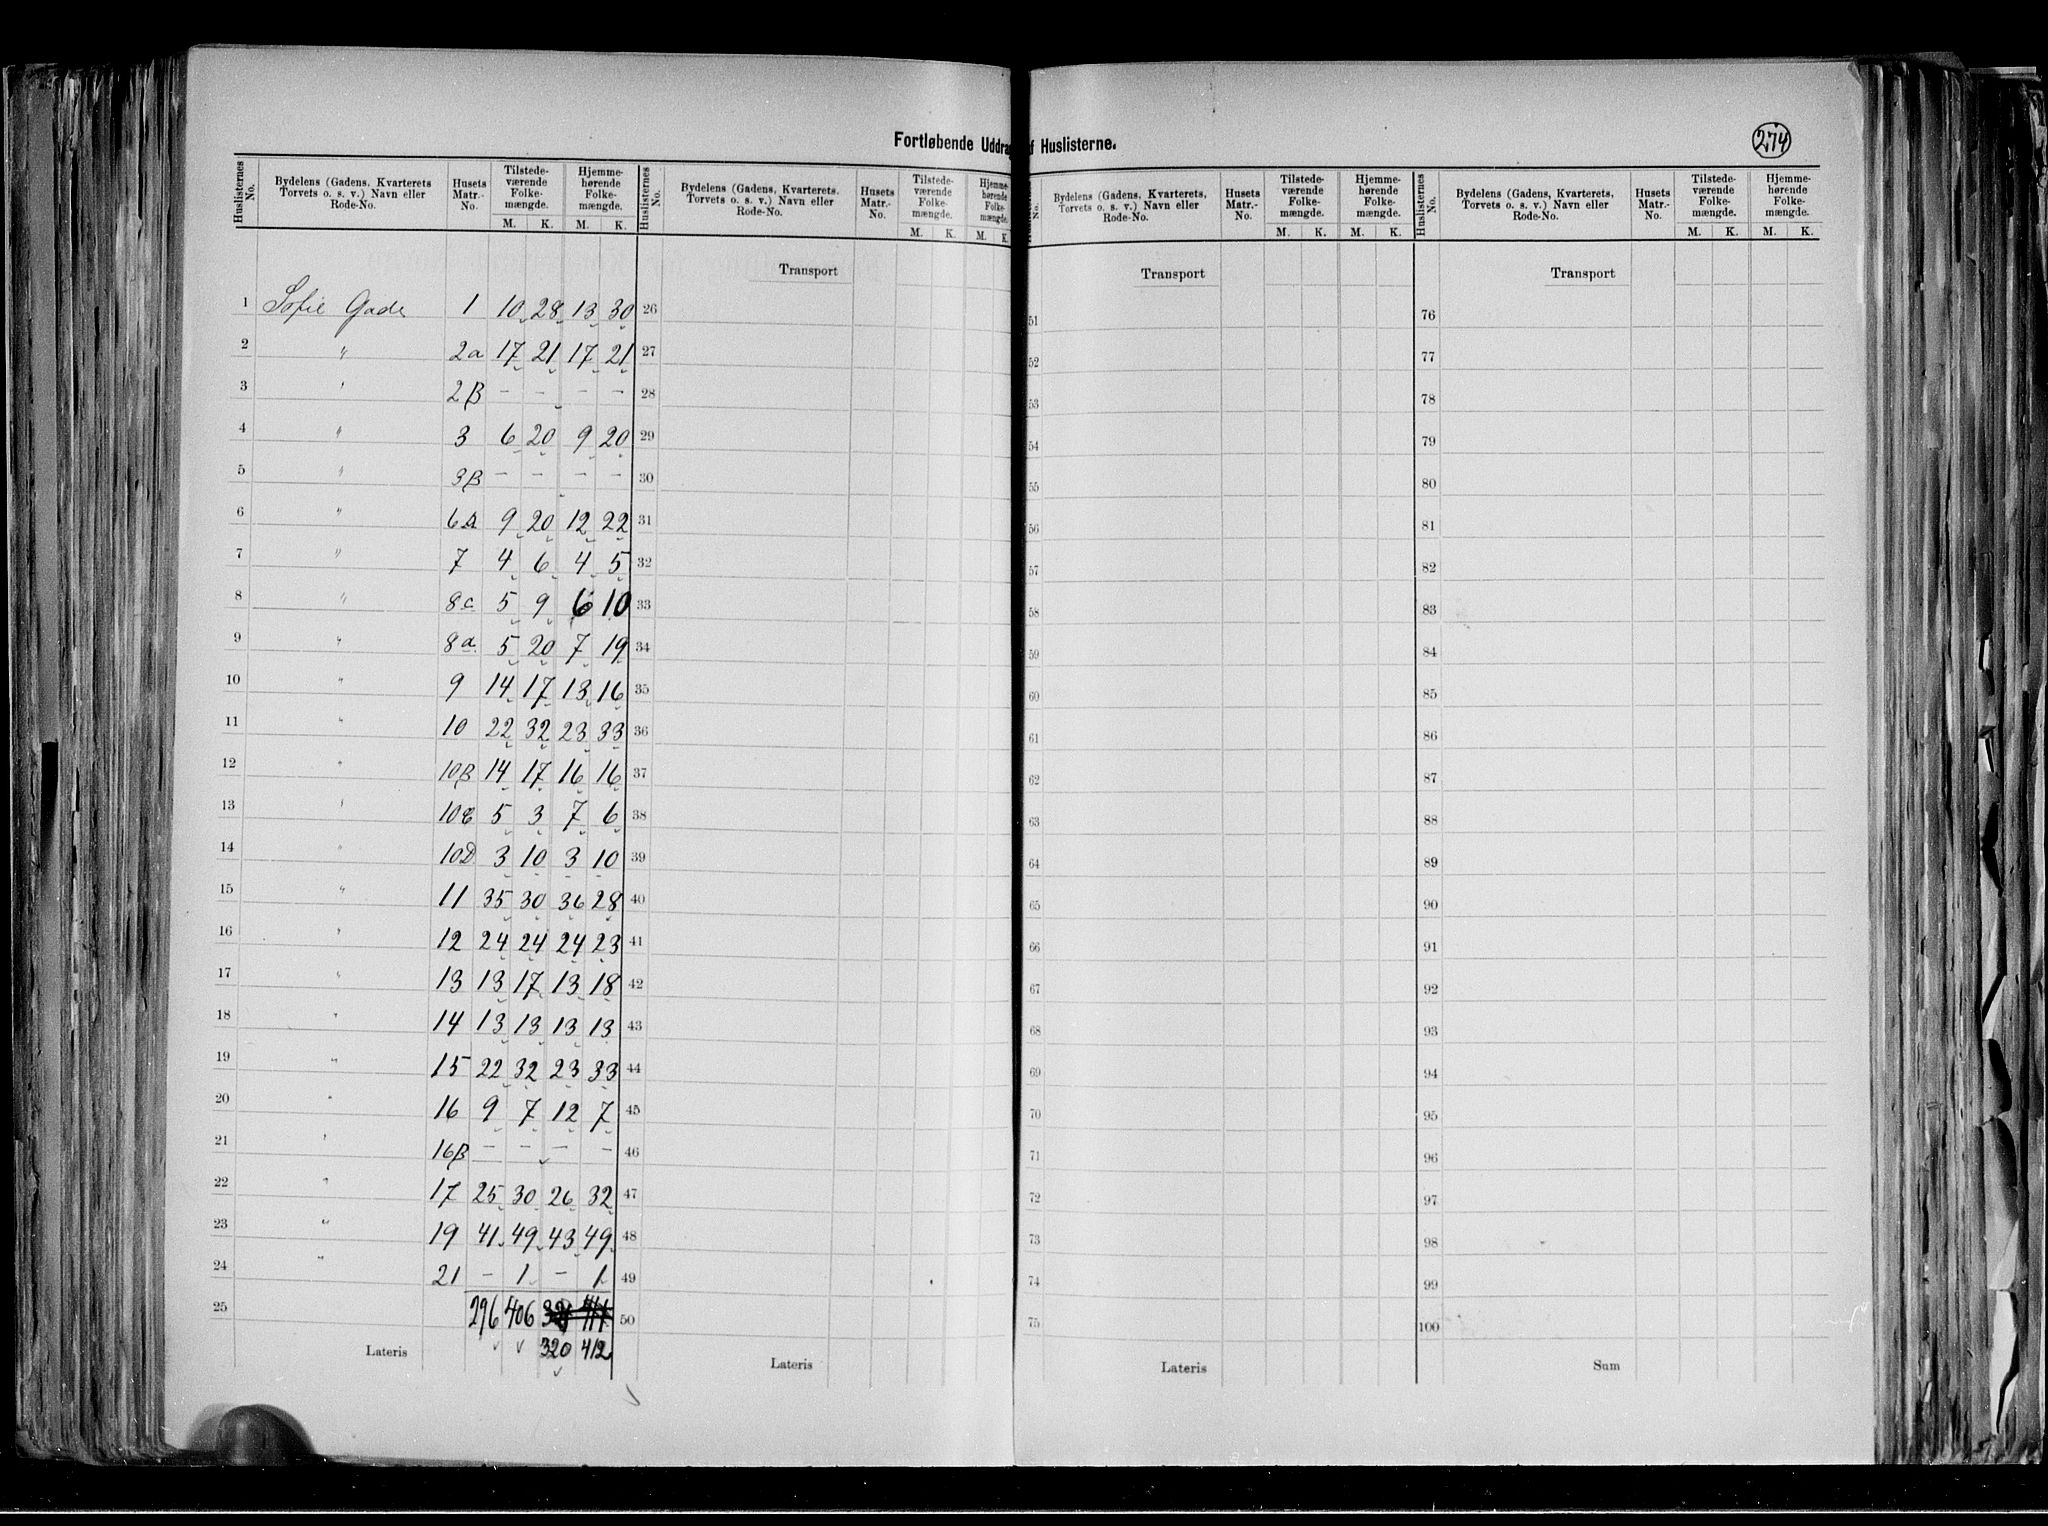 Fortløbende Uddrag af Huslisterne.
274
Huslisternes No. Bydelens (Gadens, Kvarterets Torvets o. s. v.) Navn eller Rode-No. Husets Matr.-No. Tilstedeværende Folkemængde. M. K. Hjemmehørende Folkemængde. M. K.
Huslisternes No. Bydelens (Gadens, Kvarterets, Torvets o. s. v.) Navn eller Rode-No. Husets Matr.-No. Tilstedeværende Folkemængde. M. K. Hjemmehørende Folkemængde. M. K.
No. Bydelens (Gadens, Kvarterets, Torvets o. s. v.) Navn eller Rode-No. Husets Matr.-No. Tilstedeværende Folkemængde. M. K. Hjemmehørende Folkemængde. M. K.
Huslisternes No. Bydelens (Gadens, Kvarterets, Torvets o. s. v.) Navn eller Rode-No. Husets Matr.-No. Tilstedeværende Folkemængde. M. K. Hjemmehørende Folkemængde. M. K.
Transport Transport Transport
1 Sofie Gade 1 10 28 13 30 26 51 76
2 " 2a 17 21 17 21 27 52 77
3 " 2B - - - - 28 53 78
4 " 3 6 20 9 20 29 54 79
5 " 3B - - - - 30 55 80
6 " 6a 9 20 12 22 31 56 81
7 " 7 4 6 4 5 32 57 82
8 " 8c 5 9 6 10 33 58 83
9 " 8a 5 20 7 19 34 59 84
10 " 9 14 17 13 16 35 60 85
11 " 10 22 32 23 33 36 61 86
12 " 10B 14 17 16 16 37 62 87
13 " 10C 5 3 7 6 38 63 88
14 " 10D 3 10 3 10 39 64 89
15 " 11 35 30 36 28 40 65 90
16 " 12 24 24 24 23 41 66 91
17 " 13 13 17 13 18 42 67 92
18 " 14 13 13 13 13 43 68 93
19 " 15 22 32 23 33 44 69 94
20 " 16 9 7 12 7 45 70 95
21 " 16B - - - - 46 71 96
22 " 17 25 30 26 32 47 72 97
23 " 19 41 49 43 49 48 73 98
24 " 21 - 1 - 1 49 74 99
25 296 406 50 75 100
320 412
Lateris Lateris Lateris Sum